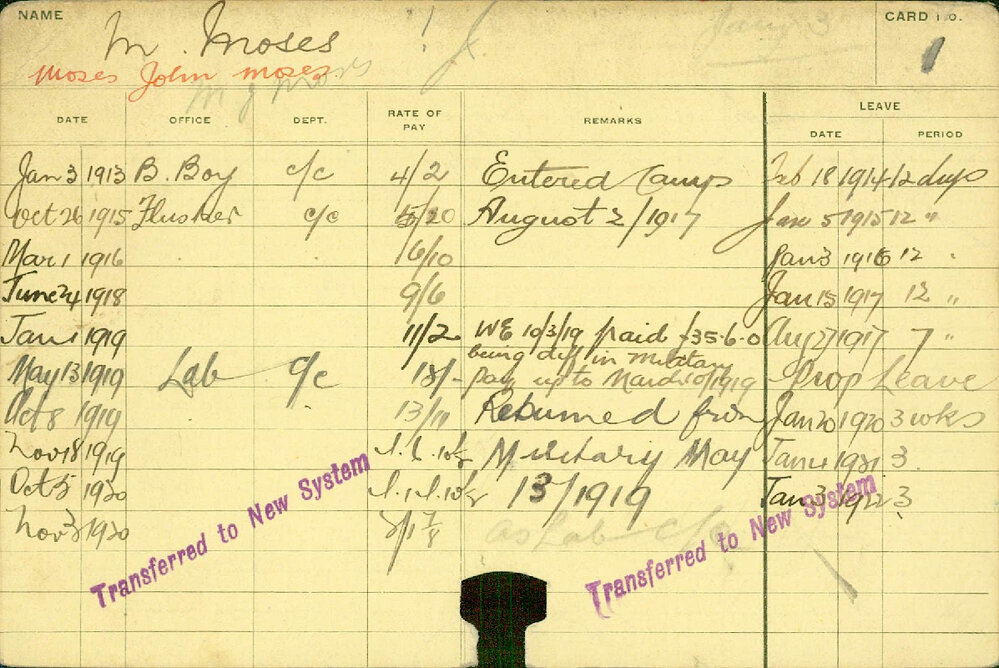 NAME
M. Moses
CARD NO.
1
Moses John Moses
LEAVE
DATE OFFICE DEPT. RATE OF PAY REMARKS DATE PERIOD
Jan 3 1913 B. Boy c/c 4/2 Entered Camp Feb 18 1914 12 days
Oct 26 1915 Flusher c/c August 2/1917 Jan 5 1915 12 "
Mar 1 1916 16/10 Jan 3 1916 12 "
June 24 1918 9/6 Jan 15 1917 12 "
Jan 1 1919 11/2 WE 10/3/19 paid £35-6-0 Aug 27 1917 7 "
being diff in Military
May 13 1919 Lab c/c 18/- pay up to March 10/1919 Prop Leave
Oct 8 1919 13/11 Returned from Jan 20 1920 3 wks
Nov 18 1919 Military May Jan 4 1921 3
Oct 5 1920 13/1919 Jan 3 1922 3
Nov 3 1920 as Lab c/c
Transferred to New System
Transferred to New System